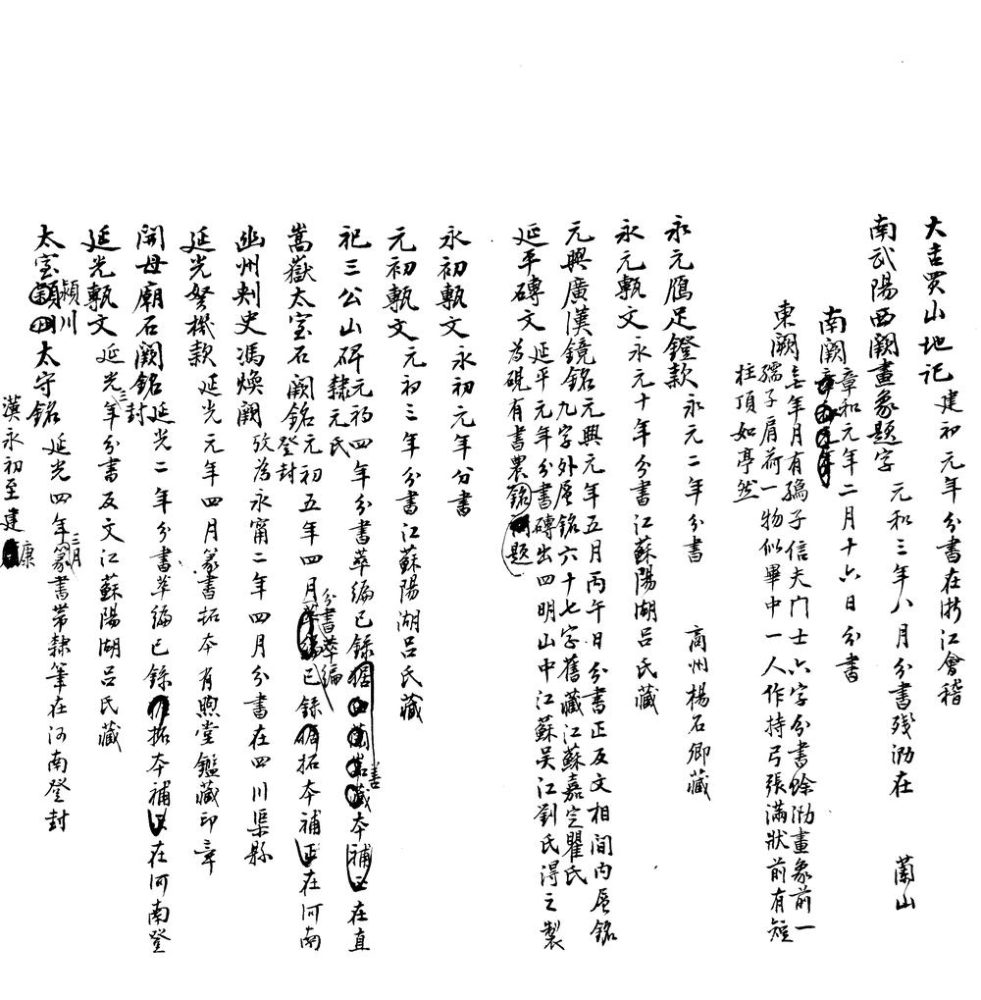 大吉買山地記 建初元年分書在浙江會稽
南武陽西闕畫象題字 元和三年八月分書殘泐在 蘭山
南闕 章和元年二月十六日分書
東闕 無年月有孺子信夫門士六字分書餘泐畫象前一
孺子肩荷一物似畢中一人作持弓張滿狀前有短
柱頂如亭然
永元鴈足鐙款 永元二年分書 商州楊石卿藏
永元甎文 永元十年分書江蘇陽湖呂氏藏
元興廣漢鏡銘 元興元年五月丙午日分書正反文相間內層銘
九字外層銘六十七字舊藏江蘇嘉定瞿氏
延平磚文 延平元年分書磚出四明山中江蘇吳江劉氏得之製
為硯有書農銘題
永初甎文 永初元年分書
元初甎文 元初三年分書江蘇陽湖呂氏藏
祀三公山碑 元初四年分書萃編已錄 善本補正在直
隸元氏
嵩嶽太室石闕銘 元初五年四月分書萃編已錄 拓本補正在河南
登封
幽州刺史馮煥闕 攷為永甯二年四月分書在四川渠縣
延光弩機款 延光元年四月篆書拓本有煦堂鑑藏印章
開母廟石闕銘 延光二年分書萃編已錄 拓本補正在河南登
封
延光甎文 延光三年分書反文江蘇陽湖呂氏藏
太室潁川太守銘 延光四年三月篆書帶隸筆在河南登封
漢永初至建康